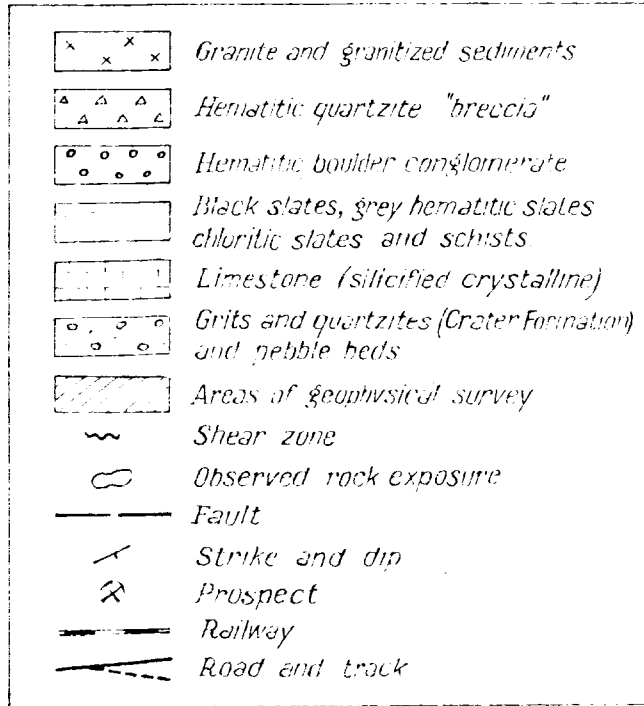 Granite and granitized sediments
Hematitic quartzite "breccia"
Hematitic boulder conglomerate
Black slates, grey hematitic slates
chloritic slates and schists
Limestone (silicified crystalline)
Grits and quartzites (Crater Formation)
and pebble beds
Areas of geophysical survey
Shear zone
Observed rock exposure
Fault
Strike and dip
Prospect
Railway
Road and track